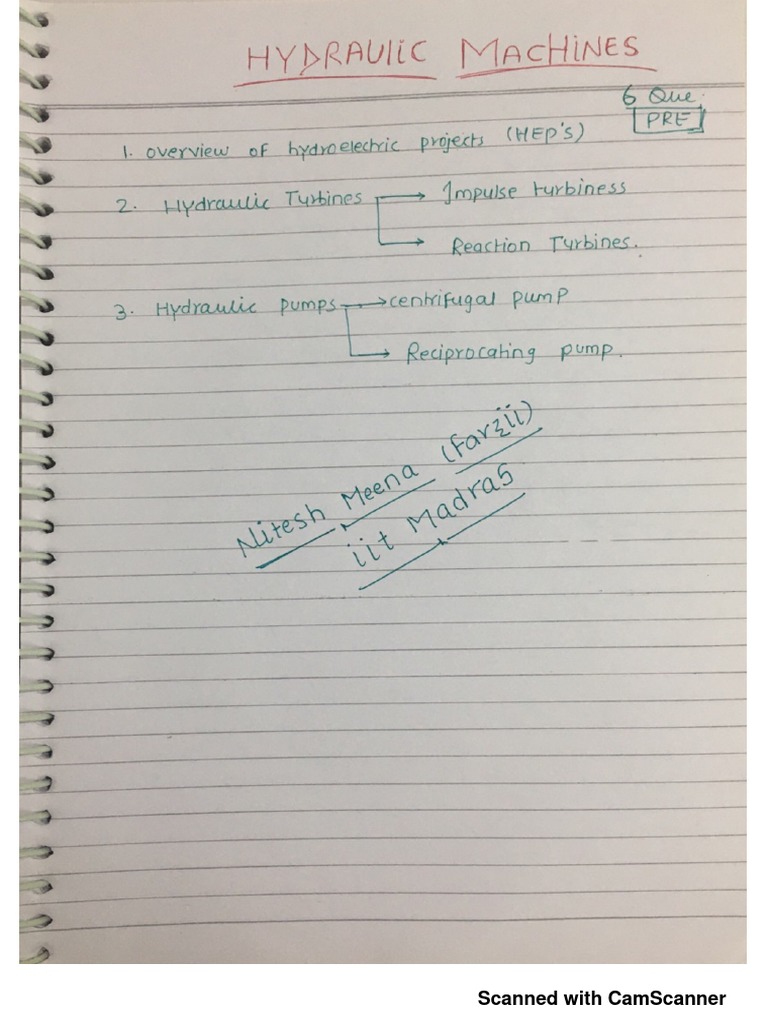 HYDRAULIC MACHINES
6 Que.
PRE
1. overview of hydroelectric projects (HEP'S)
2. Hydraulic Turbines → Impulse turbiness
→ Reaction Turbines.
3. Hydraulic pumps → centrifugal pump
→ Reciprocating pump.
Nitesh Meena (farzii)
iit Madras
Scanned with CamScanner